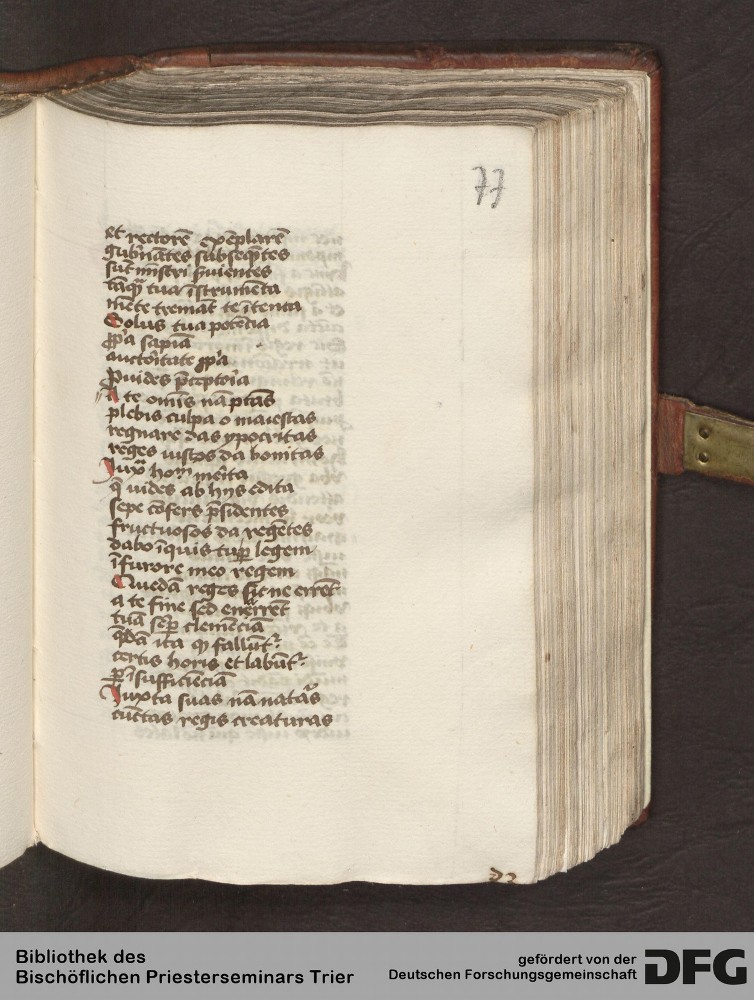 77
et rectorē exēplarē
gub̄nātes subseq̄tes
sūt mīstri s̄uientes
tāq̄ tua īstrumēta
mēte tremāt te ītenta
Solus tua potēcia
ꝓp̄a sapīa
auctōitate ꝓp̄a
ꝓuides p̄ceptoīa
A te omīs nā ptās
plebis culpa o maiestas
regnare das ypocritas
reges iustos da bonitas
Iuxᵃ hoīm mēita
q̄ uides ab hijs edita
sepe cōfers p̄sidentes
fructuosos da regētes
dabo iquis turꝑ legem
ī furore meo regem
Quedā reges sic ne errēt
a te fine sed enērrēt
tuā seꝑ clemēciā
q̄dā ita ꝙ fallūt᷑
certis horis et labūt᷑
ꝑ īsufficiēciā
Iuxta suas nā natās
cūctas regis creaturas
Bibliothek des
Bischöflichen Priesterseminars Trier
gefördert von der
Deutschen Forschungsgemeinschaft
DFG